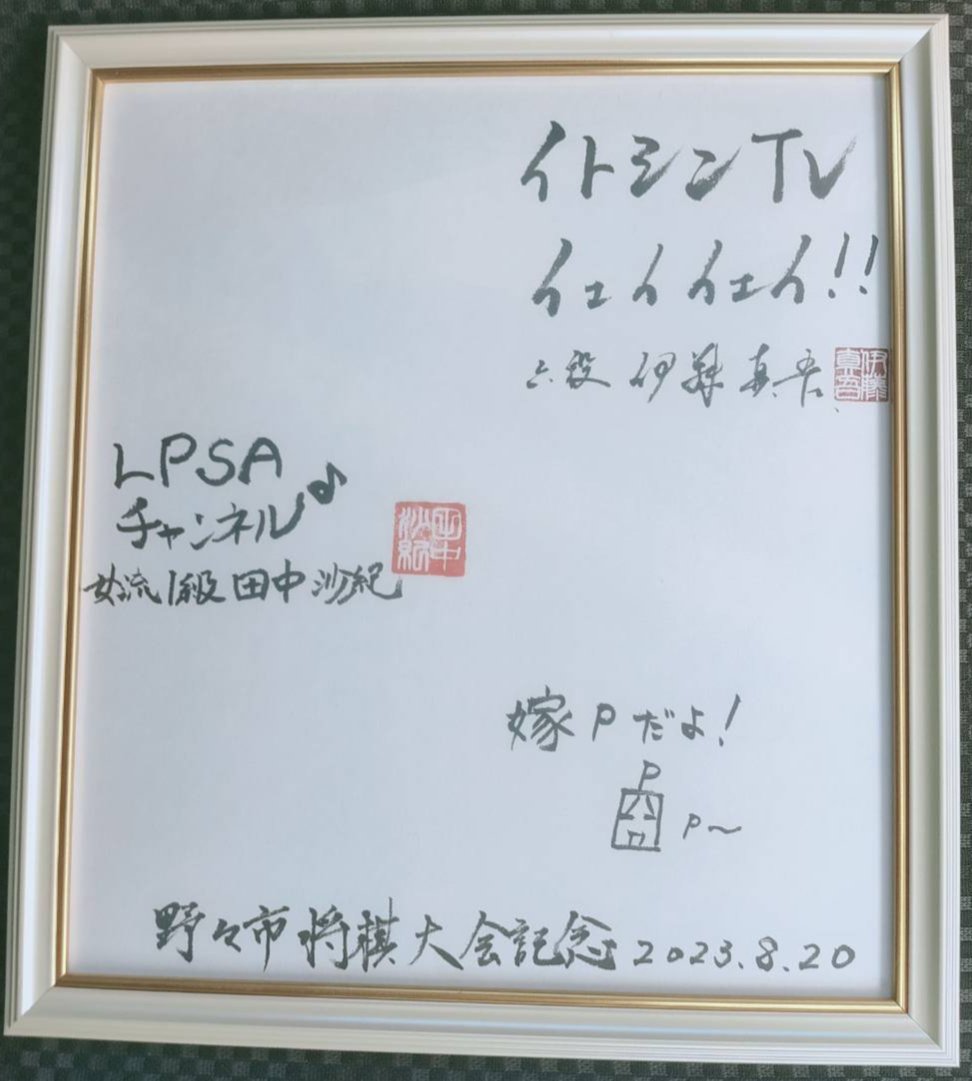 イトシンTV
イェイイェイ!!
六段 伊藤真吾
伊藤
真吾
LPSA
チャンネル♪
女流1級 田中沙紀
田中
沙紀
嫁Pだよ!
P
P〜
野々市将棋大会記念 2023.8.20